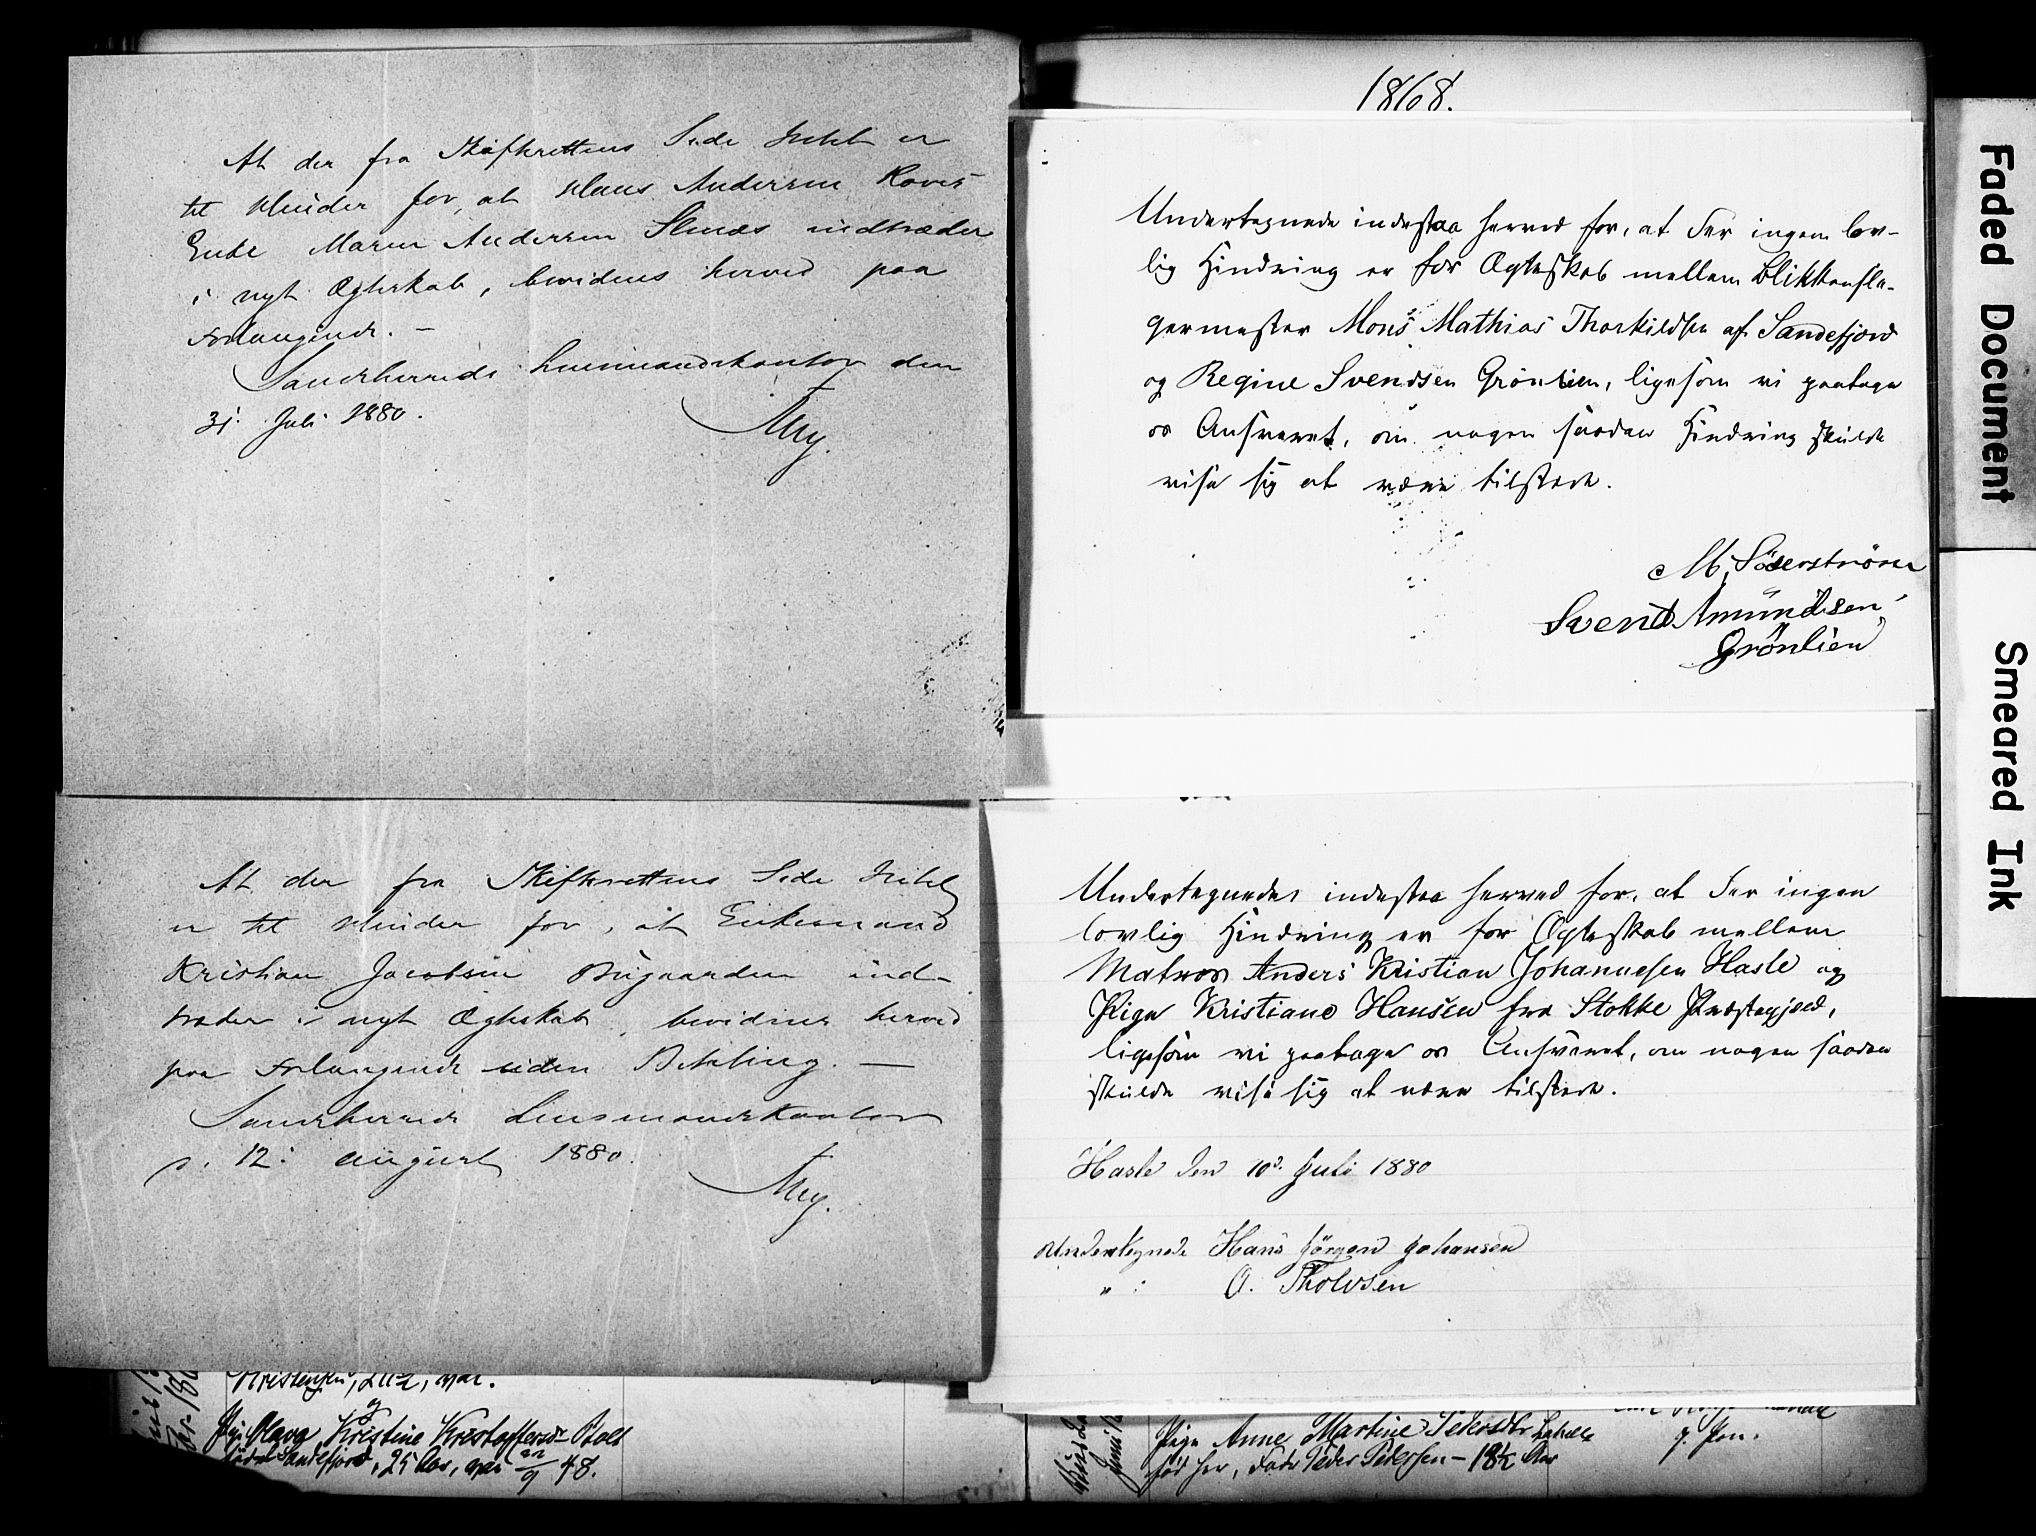 At der fra Skifterettens Side Intet er
til Hinder for, at Hans Andersen Roves
Enke Maren Andersen Stenæs indtræder
i nyt Ægteskab, bevidnes herved paa
Forlangende. —
Sandeherreds Lensmandskontor den
31. Juli 1880.
At der fra Skifterettens Side Intet
er til Hinder for, at Enkemand
Kristian Jacobsen Bugaarden ind-
træder i nyt Ægteskab, bevidnes herved
paa Forlangende uden Betaling. —
Sandeherreds Lensmandskontor
d. 12. august 1880.
Kristensen,
og
Pige Mava Kristine Kristoffersdr Bolt
født i Sandefjord, 25 Aar, vac 48.
1868.
Undertegnede indestaa herved for, at der ingen lov-
lig Hindring er for Ægteskab mellem Blikkensla-
germester Mons Mathias Thorkildsen af Sandefjord
og Regine Svendsen Grönlien, ligesom vi paatage
os Ansvaret, om nogen saadan Hindring skulde
vise sig at være tilstede.
M. Söderström
Svend Amundsen
Grönlien
Undertegnede indestaa herved for, at der ingen
lovlig Hindring er for Ægteskab mellem
Matros Anders Kristian Johannesen Hasle og
Pige Kristiane Hansen fra Stokke Præstegjeld,
ligesom vi paatage os Ansvaret, om nogen saadan
skulde vise sig at være tilstede.
Hasle den 10d. Juli 1880
Undertegnede Hans Jörgen Johansen
" : O. Tholvsen
Pige Anne Martine Pedersdtr
født her, Fader Peder Petersen – 18½ Aar
Faded Document
Smeared Ink